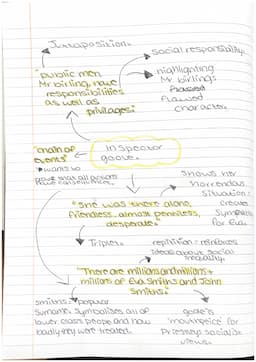 Juxtaposition.
social responsibility.
"public men
Mr birling, have
responsibilities
as well as
privilages."
highlighting
Mr birlings
flawed
character.
Inspector
goole.
"chain of
events"
wants to
prove that all actions
have consequences.
shows her
horrendous
situation.
creates
sympathy
for Eva.
"she was there alone,
friendless, almost penniless,
desperate."
Triples.
repitition: reinforces
ideas about social
inequality.
"There are millions and millions +
millions of Eva Smiths and John
Smiths."
smiths: popular
surname. Symbolises all of
lower class people and how
badly they were treated.
goole is
'mouthpiece' for
Priestley socialist
views.